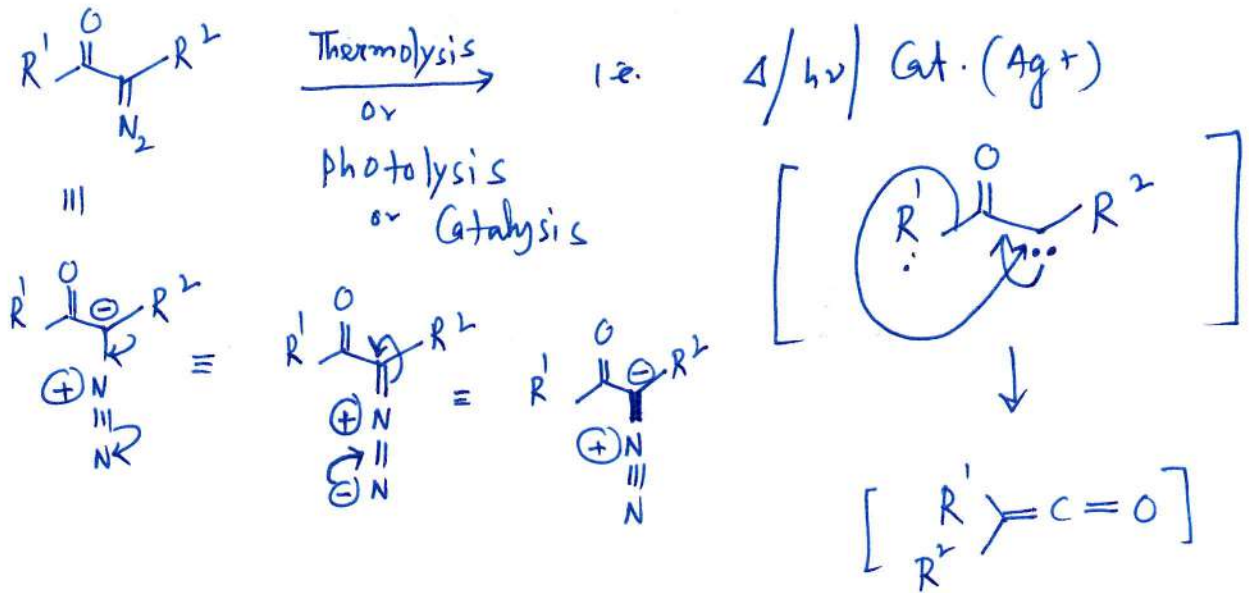 O
R¹ R²
N₂
Thermolysis
or
photolysis
or Catalysis
i.e. Δ/hν/ Cat. (Ag+)
[ O
R¹ R² ]
: ··
|||
O
R¹ ⊖ R²
⊕ N
|||
N
≡
O
R¹ R²
⊕ N
||
⊖ N
≡
O
R¹ ⊖ R²
⊕ N
|||
N
[ R¹
=C=O ]
R²